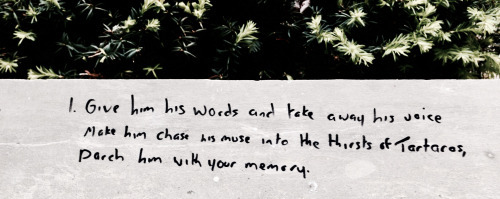 1. Give him his words and take away his voice
Make him chase his muse into the thirsts of Tartaros,
Parch him with your memory.